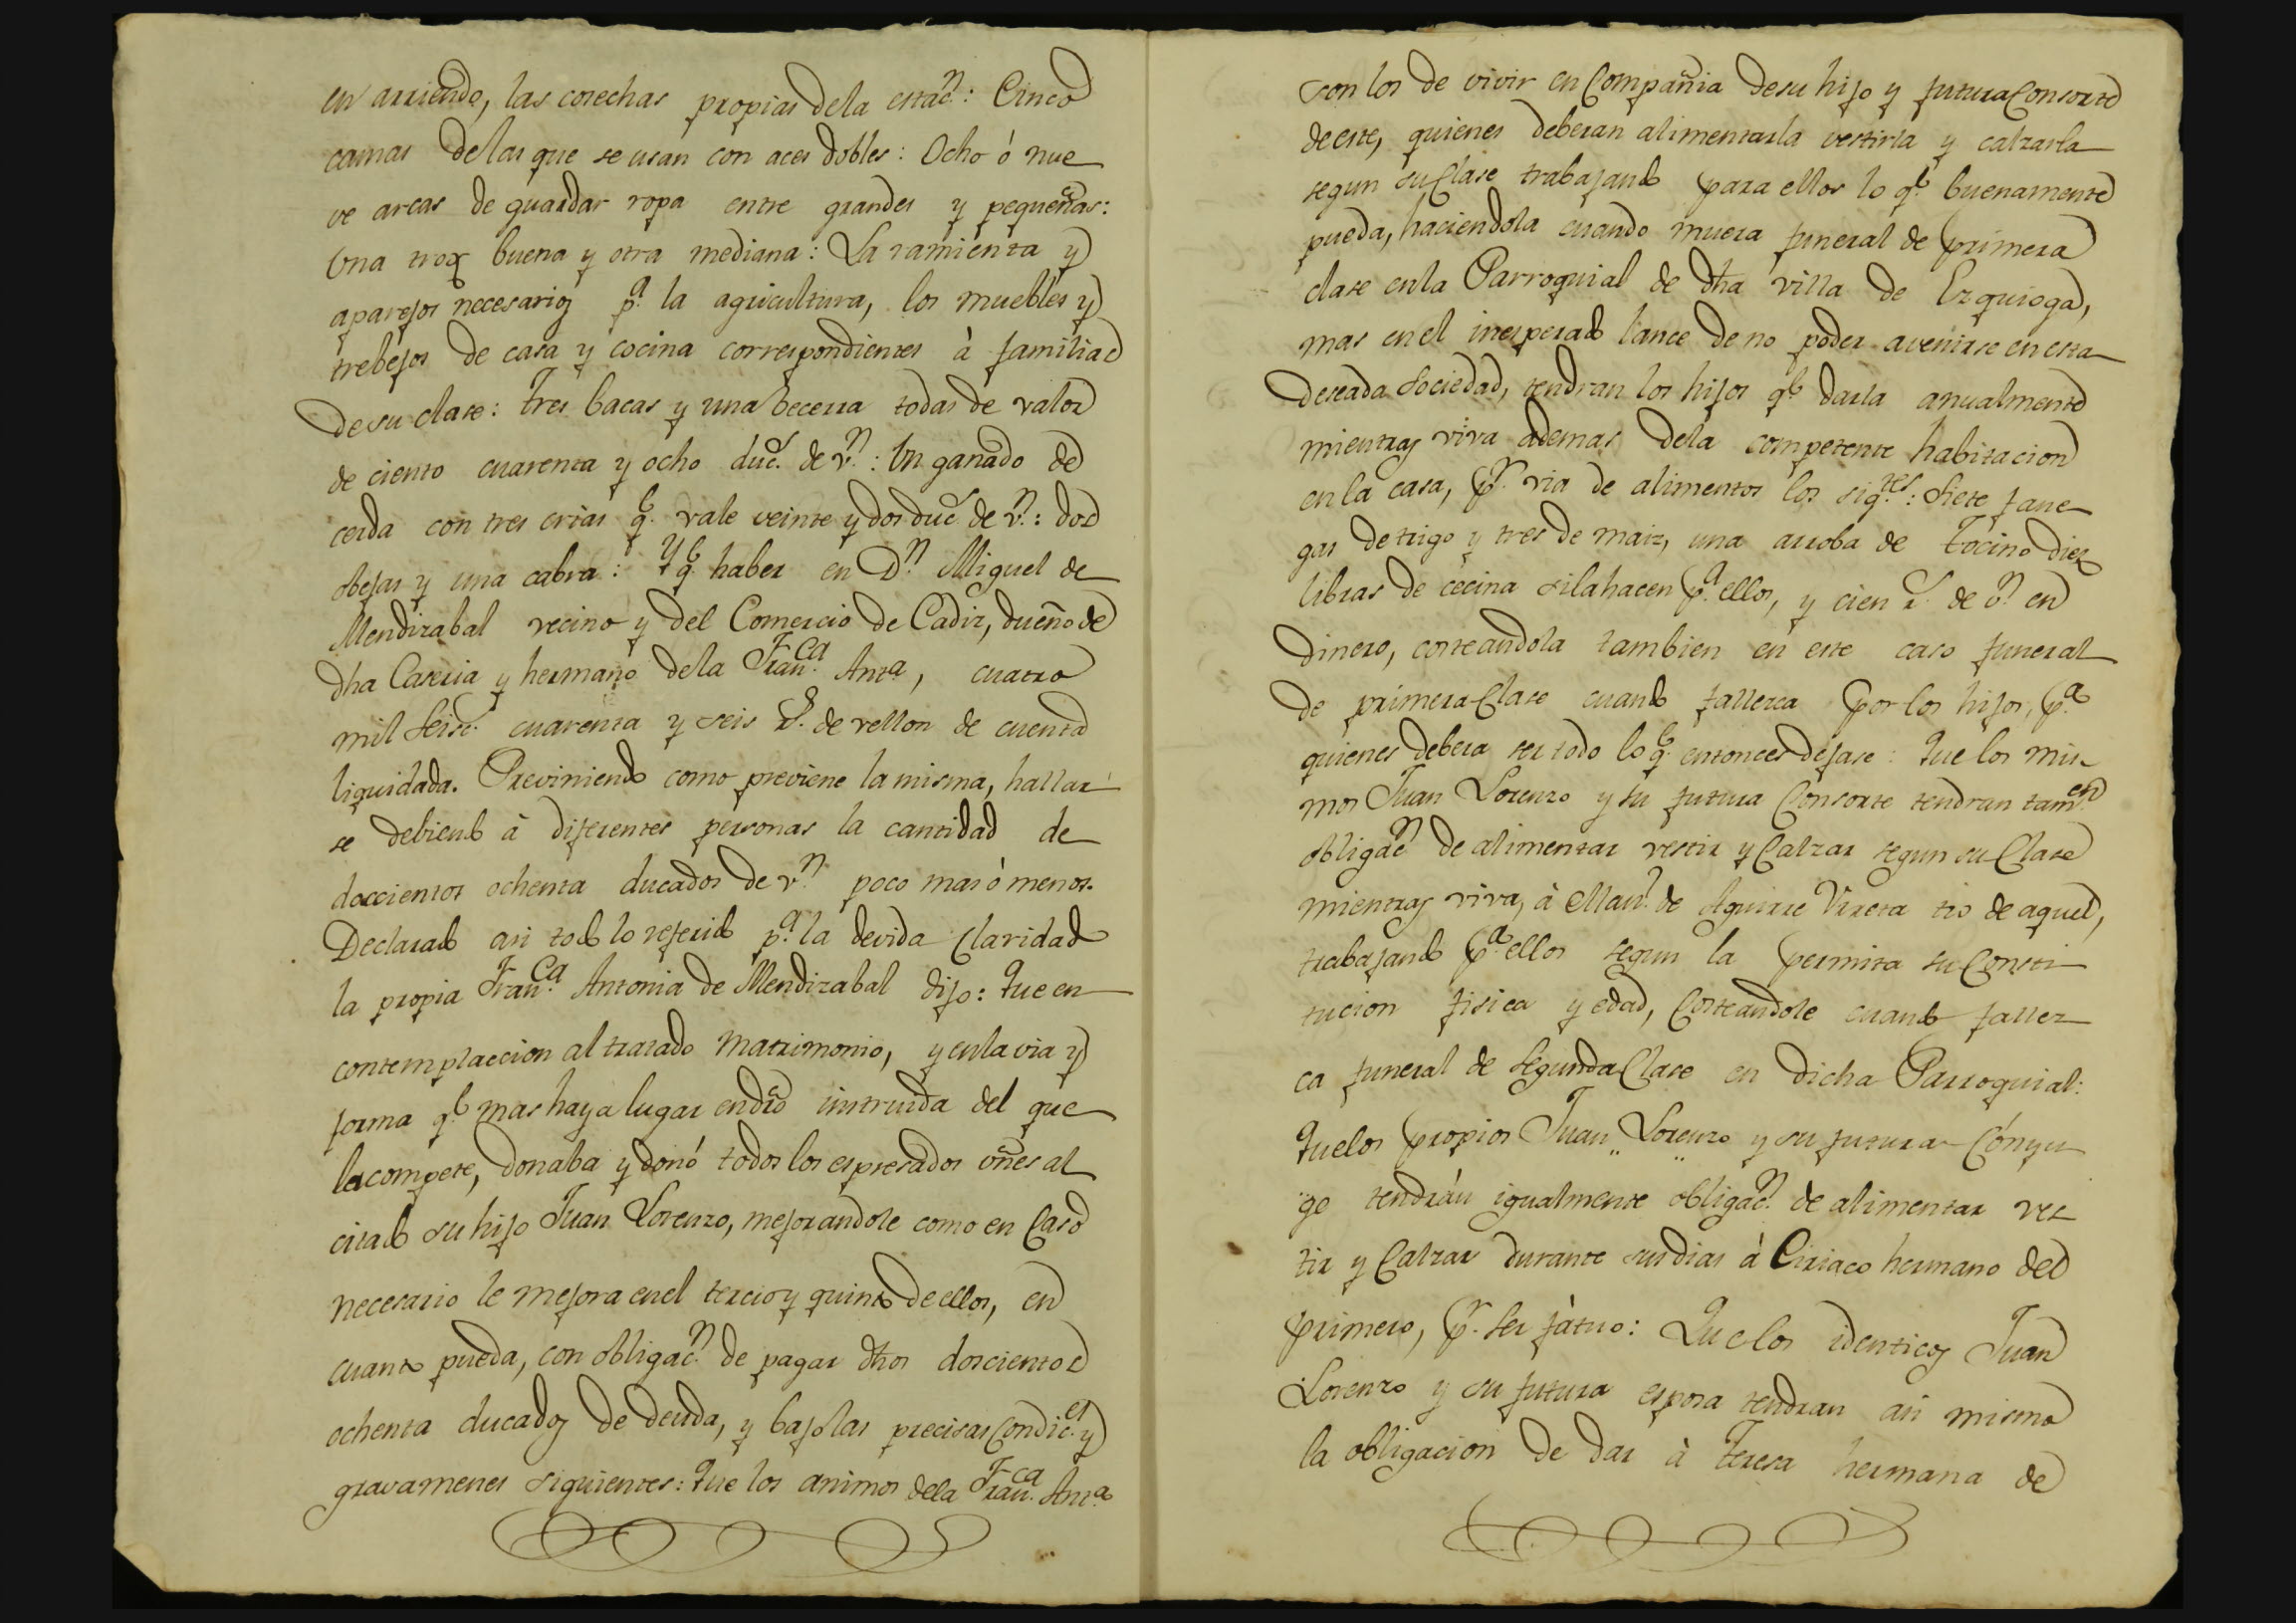 en arriendo, las cosechas propias dela estac.n: Cinco
camas delas que se usan con aces dobles: Ocho ó nue
ve arcas de guardar ropa entre grandes y pequeñas:
Una trox buena y otra mediana: La ramienta y
aparejos necesarios p.a la agricultura, los muebles y
trebejos de casa y cocina correspondientes à familia
de su clase: Tres bacas y una becerra todas de valor
de ciento cuarenta y ocho duc.s de v.n: Un ganado de
cerda con tres crias q.e vale veinte y dos duc.s de v.n: dos
obejas y una cabra: Y q.e haber en D.n Miguel de
Mendizabal vecino y del Comercio de Cadiz, dueño de
dha Caseria y hermano dela Fran.ca Ant.a, cuatro
mil seisc.s cuarenta y seis r.s de vellon de cuenta
liquidada. Previniendo como previene la misma, hallar
se debiendo à diferentes personas la cantidad de
doscientos ochenta ducados de v.n poco mas ó menos.
Declarado asi todo lo referido p.a la devida claridad
la propia Fran.ca Antonia de Mendizabal dijo: Que en
contemplaccion al tratado Matrimonio, y en la via y
forma q.e mas haya lugar en dro instruida del que
le compete, donaba y donó todos los espresados vñes al
citado su hijo Juan Lorenzo, mejorandole como en Caso
necesario le mejora en el tercio y quinto de ellos, en
cuanto pueda, con obligac.n de pagar dhos doscientos
ochenta ducados de deuda, y bajo las precisas Condic.es y
gravamenes siguientes: Que los animos dela Fran.ca Ant.a
son los de vivir en Compañia de su hijo y futura Consorte
de este, quienes deberan alimentarla vestirla y calzarla
segun su Clase trabajando para ellos lo q.e buenamente
pueda, haciendola cuando muera funeral de primera
clase en la Parroquial de dha villa de Ezquioga,
mas en el inesperado lance de no poder avenirse en esta
deseada Sociedad, tendran los hijos q.e darla anualmente
mientras viva ademas dela competente habitacion
en la casa, p.r via de alimentos los sig.tes: Siete fane
gas de trigo y tres de maiz, una arroba de Tocino diez
libras de cecina si la hacen p.a ellos, y cien r.s de v.n en
dinero, costeandola tambien en este caso funeral
de primera Clase cuando fallezca por los hijos, p.a
quienes debera ser todo lo q.e entonces dejase: Que los mis
mos Juan Lorenzo y su futura Consorte tendran tam.en
obligac.n de alimentar vestir y Calzar segun su Clase
mientras viva, à Man.l de Aguirre Urreta tio de aquel,
trabajando p.a ellos segun la permita su Consti
tucion fisica y edad, Costeandole cuando fallez
ca funeral de Segunda Clase en dicha Parroquial:
Que los propios Juan Lorenzo y su futura Cónyu
ge tendràn igualmente obligac.n de alimentar ves
tir y Calzar durante sus dias à Ciriaco hermano del
primero, p.r ser fàtuo: Que los identicos Juan
Lorenzo y su futura esposa tendran asi mismo
la obligacion de dar à Teresa hermana de